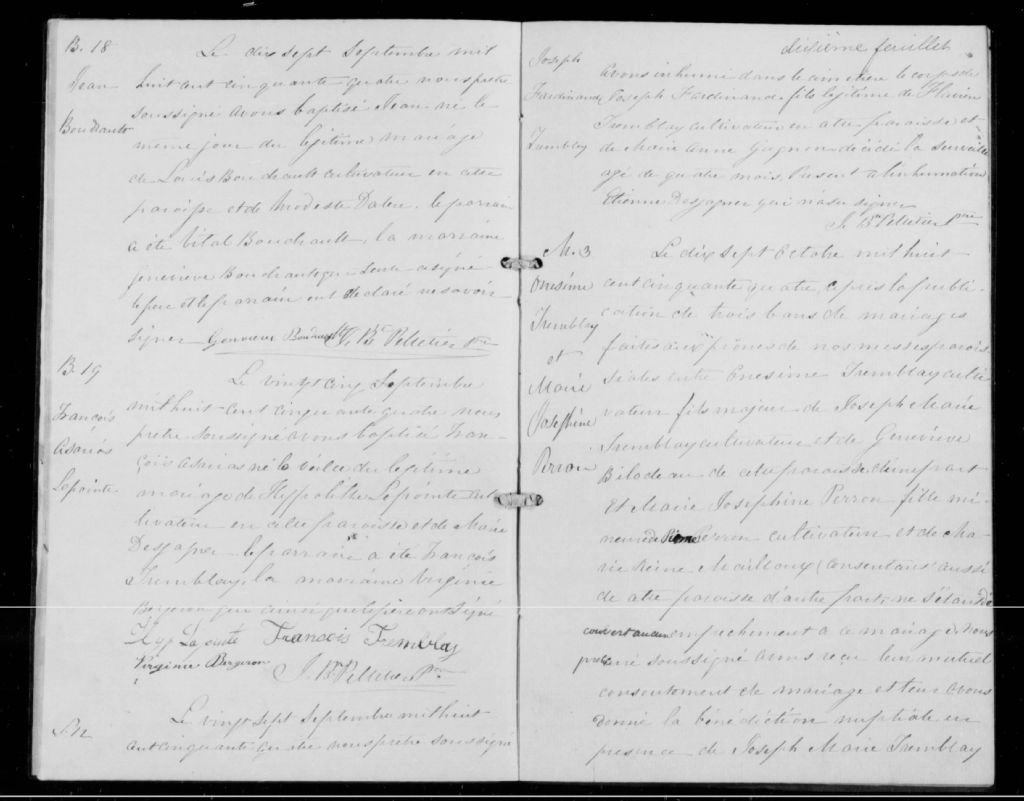 B. 18
Jean
Boudrault
Le dix sept Septembre mil
huit cent cinquante quatre nous pretre
soussigné avons baptisé Jean né le
meme jour du légitime mariage
de Louis Boudrault cultivateur en cette
paroisse et de Modeste Dalen. le parrain
a été Vital Boudrault, la marraine
Genevieve Boudrault qui seule a signé
le père et le parrain ont declaré ne savoir
signer Genevieve Boudrault J. Bte Pelletier Ptre
B. 19
François
Asarias
Lapointe
Le vingt cinq Septembre
mil huit-cent cinquante quatre nous
pretre soussigné avons baptisé Fran-
çois Asarias né la veille du légitime
mariage de Hyppolithe Lapointe cul
tivateur en cette paroisse et de Marie
Desgagner le parrain a été François
Tremblay, la marraine Virginie
Bergeron qui ainsi que le père ont signé
Hyp Lapointe François Tremblay
Virginie Bergeron
J. Bte Pelletier Ptre
S. 12
Le vingt sept Septembre mil huit
cent cinquante quatre nous pretre soussigné
dixième feuillet
Joseph
Fardinand
Tremblay
Avons inhumé dans le cimetiere le corps de
Joseph Fardinand fils légitime de
Tremblay cultivateur en cette paroisse et
de Marie Anne Gagnon décédé la surveille
agé de quatre mois. Present a l'inhumation
Etienne Desgagner qui n'a su signer
J. Bte Pelletier Ptre
M. 3
Onesime
Tremblay
et
Marie
Josephine
Perron
Le dix sept Octobre mil huit
cent cinquante quatre, après la publi-
cation de trois bans de mariages
faites aux prônes de nos messes parois
siales entre Onesime Tremblay culti
vateur fils majeur de Joseph Marie
Tremblay cultivateur et de Geneviève
Bilodeau de cette paroisse d'une part
Et Marie Josephine Perron fille mi-
neure de Perron cultivateur et de
Reine Mailloux (consentants) aussi
de cette paroisse d'autre part ne s'étant dé
couvert aucun empechement a ce mariage Nous
pretre soussigné avons reçu leur mutuel
consentement de mariage et leur avons
donné la bénédiction nuptiale en
presence de Joseph Marie Tremblay